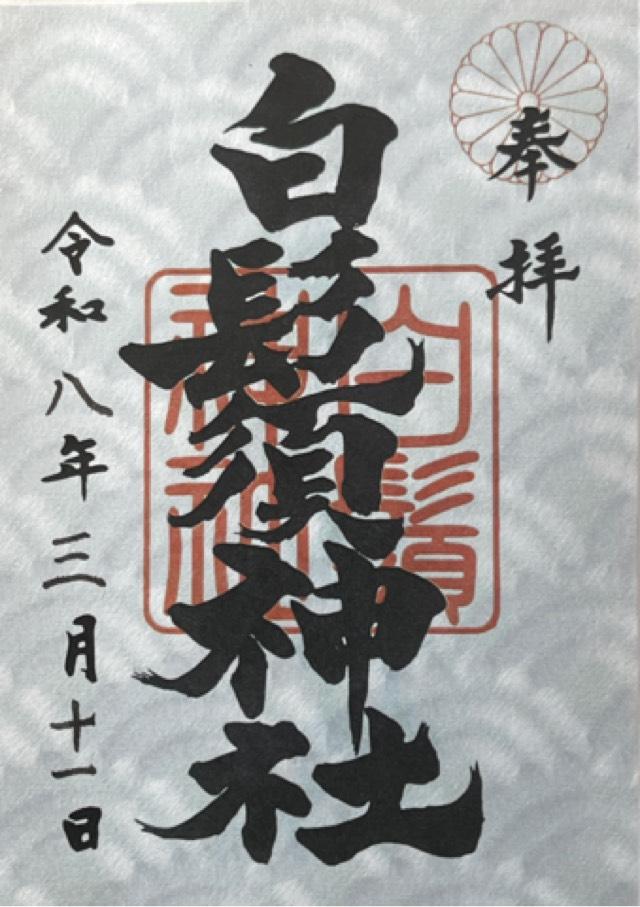 奉拝
白鬚神社
令和八年三月十一日
白鬚
神社